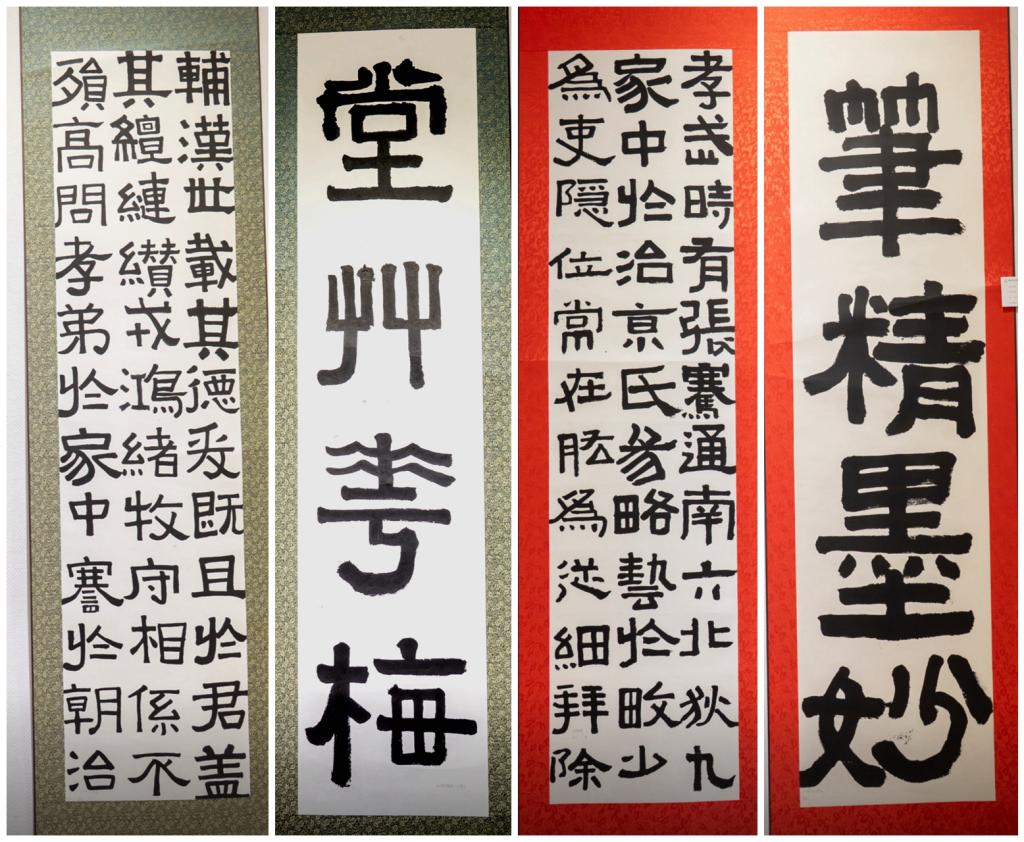 筆精墨妙
孝武時有張騫通南六北狄九
家中於治京氏易略藝於畋少
為吏隱位常在肱為從細拜除
堂艸華梅
輔漢世載其德爰既且於君盖
其繵縺纘戎鴻緒牧守相係不
殞高問孝弟於家中謇於朝治